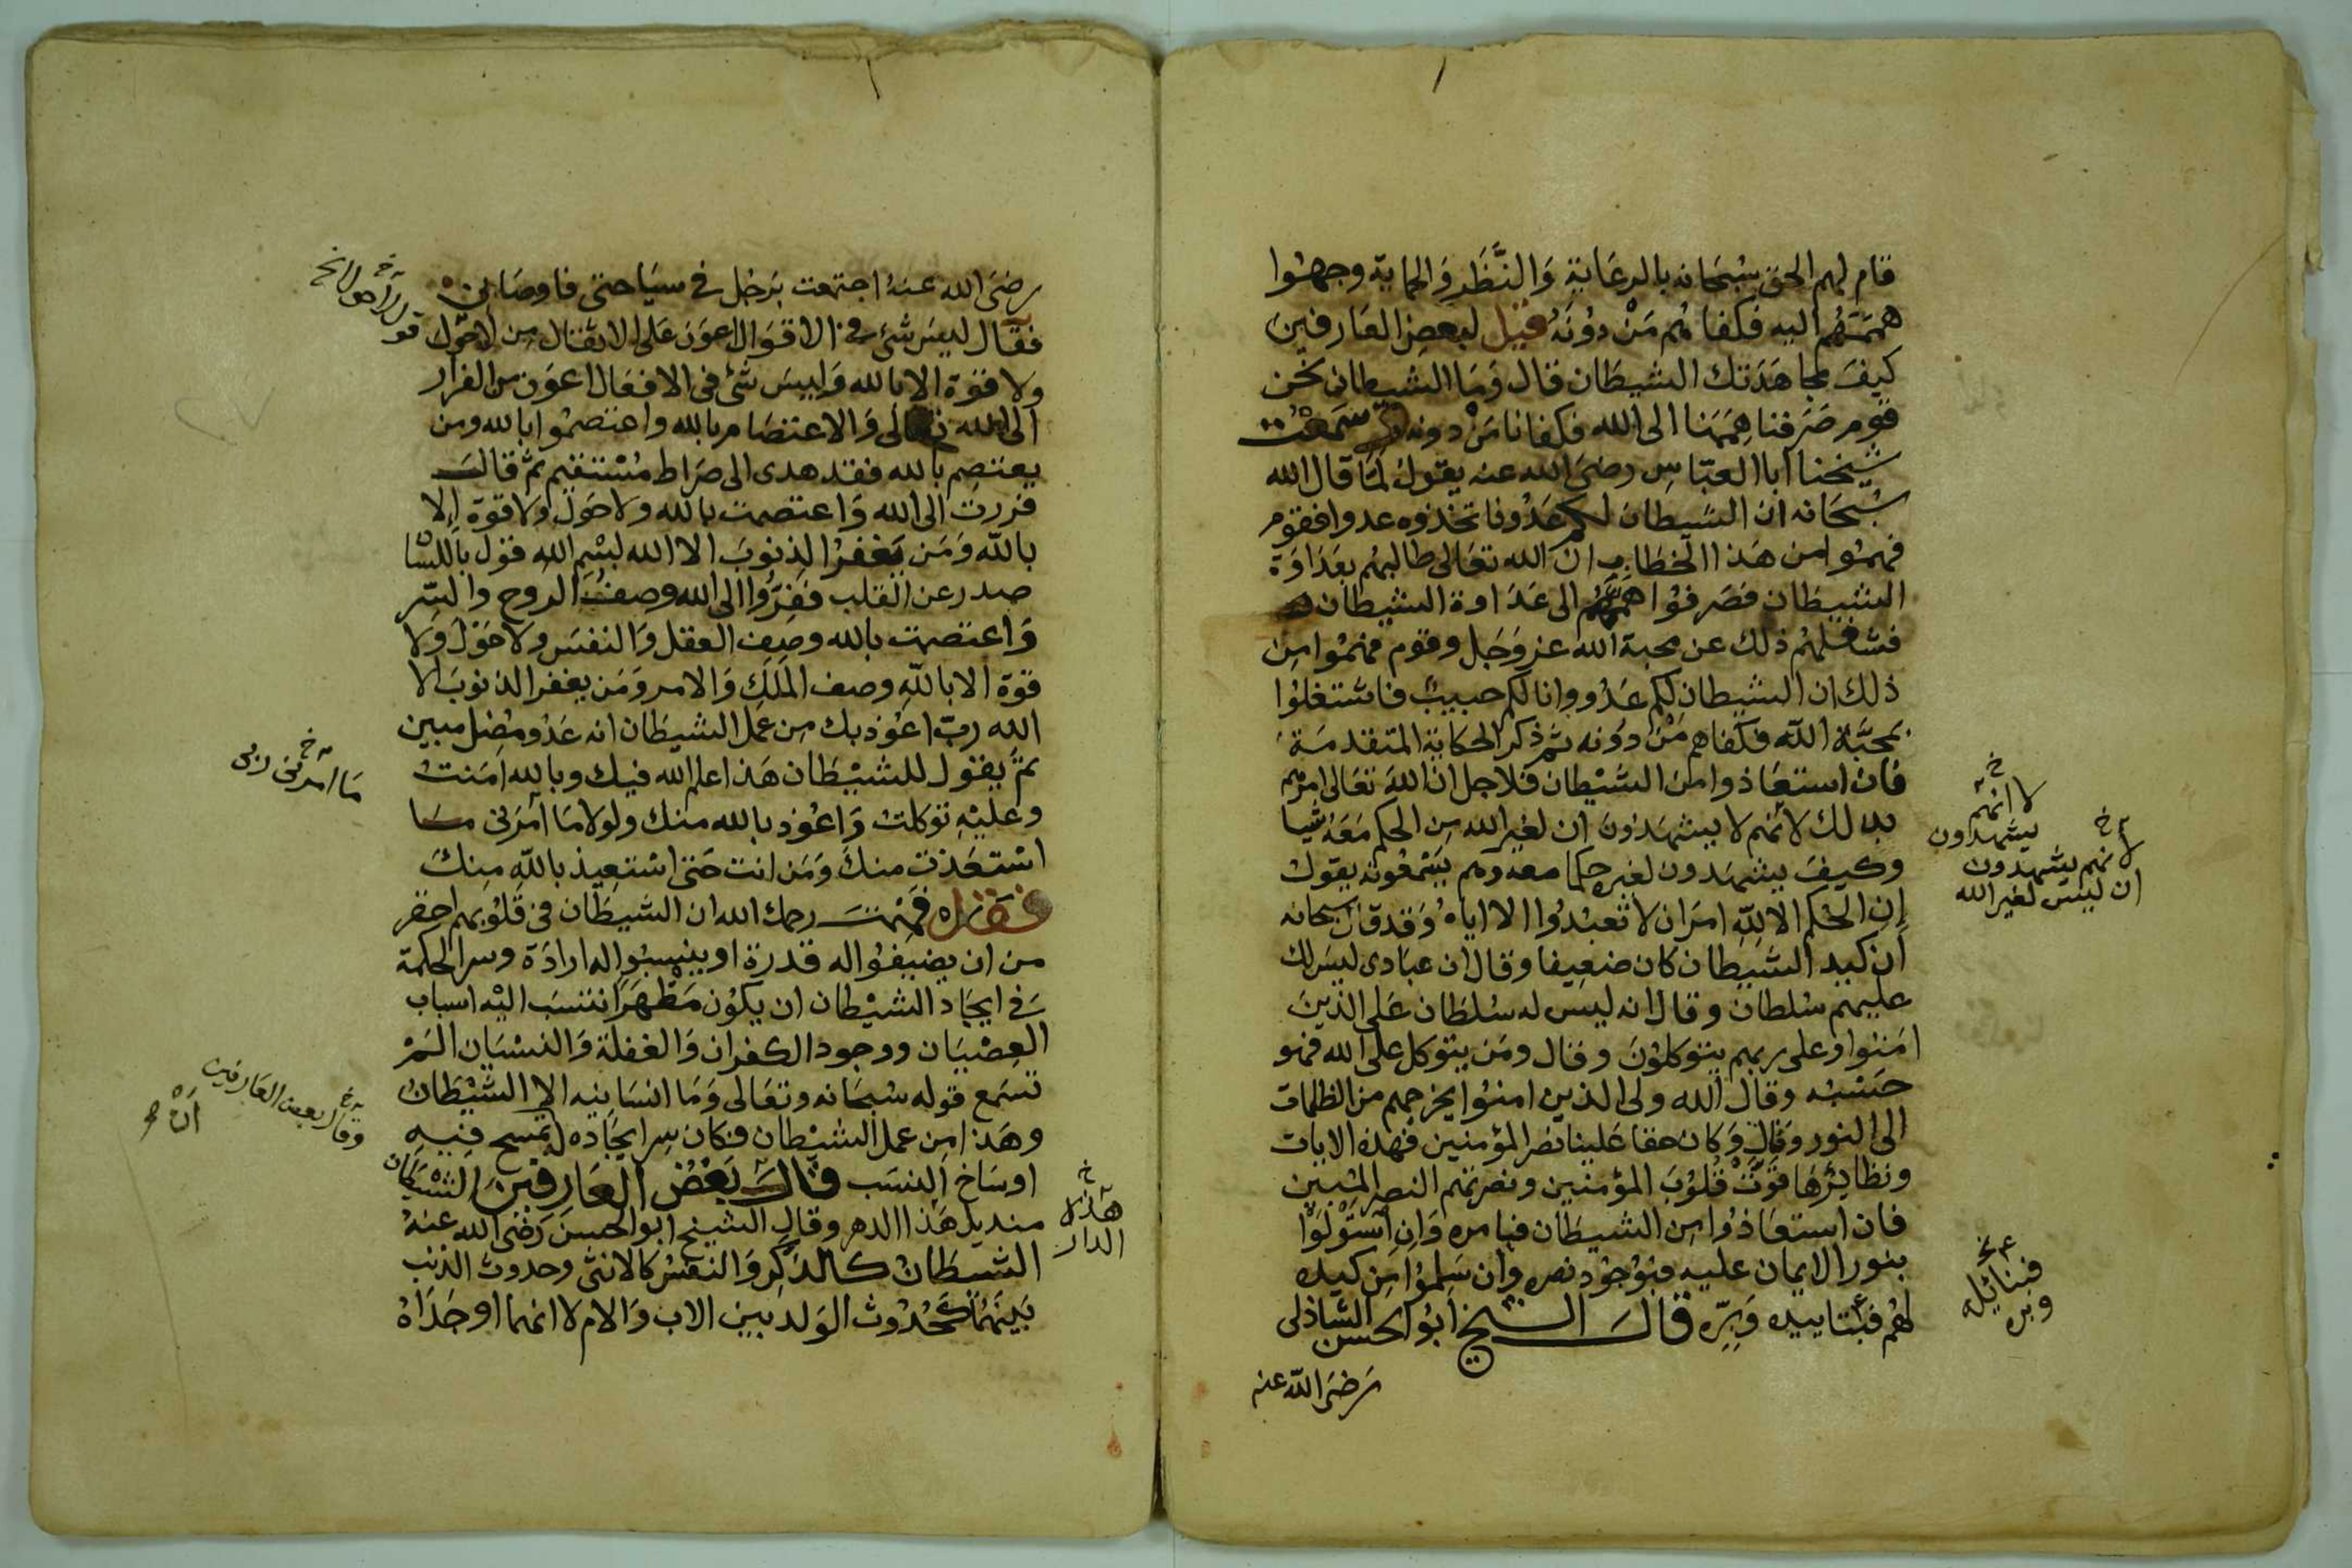 قام لهم الحق سبحانه بالرعاية والنظر والحماية وجهوا
هممهم اليه فكفاهم من دونه قيل لبعض العارفين
كيف مجاهدتك الشيطان قال وما الشيطان نحن
قوم صرفنا هممنا الى الله فكفانا من دونه وسمعت
شيخنا ابا العباس رضى الله عنه يقول لما قال الله
سبحانه ان الشيطان لكم عدو فاتخذوه عدوا فقوم
فهموا من هذا الخطاب ان الله تعالى طالبهم بعداوة
الشيطان فصرفوا هممهم الى عداوة الشيطان
فشغلهم ذلك عن محبة الله عز وجل وقوم فهموا من
ذلك ان الشيطان لكم عدو وانا لكم حبيب فاشتغلوا
بمحبة الله فكفاهم من دونه ثم ذكر الحكاية المتقدمة
فان استعاذوا من الشيطان فلاجل ان الله تعالى امرهم
بذلك لا انهم لا يشهدون ان لغير الله من الحكم معه شيا
وكيف يشهدون لغيره حكما معه وهم يسمعونه يقول
ان الحكم الا لله امر ان لا تعبدوا الا اياه وقد قال سبحانه
ان كيد الشيطان كان ضعيفا وقال ان عبادى ليس لك
عليهم سلطان وقال انه ليس له سلطان على الذين
امنوا وعلى ربهم يتوكلون وقال ومن يتوكل على الله فهو
حسبه وقال الله ولى الذين امنوا يخرجهم من الظلمات
الى النور وقال وكان حقا علينا نصر المؤمنين فهذه الايات
ونظائرها قوت قلوب المؤمنين ونصرتهم النصر المبين
فان استعاذوا من الشيطان فبامره وان استولوا
بنور الايمان عليه فبوجود نصره وان سلموا من كيده
لهم فبتاييده وبره قال الشيخ ابو الحسن الشاذلى
رضى الله عنه
لا انهم
يشهدون
لانهم يشهدون
ان ليس لغير الله
وبره
رضى الله عنه اجتمعت برجل فى سياحتى فاوصانى
فقال ليس شئ فى الاقوال اعون على الافعال من لا حول
ولا قوة الا بالله وليس شئ فى الافعال اعون من الفرار
الى الله تعالى والاعتصام بالله واعتصموا بالله ومن
يعتصم بالله فقد هدى الى صراط مستقيم ثم قال
فررت الى الله واعتصمت بالله ولا حول ولا قوة الا
بالله ومن يغفر الذنوب الا الله بسم الله قول باللسا
صدر عن القلب ففروا الى الله وصف الروح والسر
واعتصمت بالله وصف العقل والنفس ولا حول ولا
قوة الا بالله وصف الملك والامر ومن يغفر الذنوب الا
الله رب اعوذ بك من عمل الشيطان انه عدو مضل مبين
ثم يقول للشيطان هذا علم الله فيك وبالله امنت
وعليه توكلت واعوذ بالله منك ولولا ما امرنى ما
استعذت منك ومن انت حتى استعيذ بالله منك
فقد فهمت رحمك الله ان الشيطان فى قلوبهم احقر
من ان يضيفوا له قدرة او ينسبوا له ارادة وسر الحكمة
فى ايجاد الشيطان ان يكون مظهرا ننسب اليه اسباب
العصيان ووجود الكفران والغفلة والنسيان الم
تسمع قوله سبحانه وتعالى وما انسانيه الا الشيطان
وهذا من عمل الشيطان فكان سر ايجاده ليمسح فيه
اوساخ النسب قال بعض العارفين الشيطان
منديل هذا الدهر وقال الشيخ ابو الحسن رضى الله عنه
الشيطان كالذكر والنفس كالانثى وحدوث الذنب
بينهما كحدوث الولد بين الاب والام لا انهما اوجداه
ما امرنى ربى
وقال بعض العارفين
ان
هذه
الدار